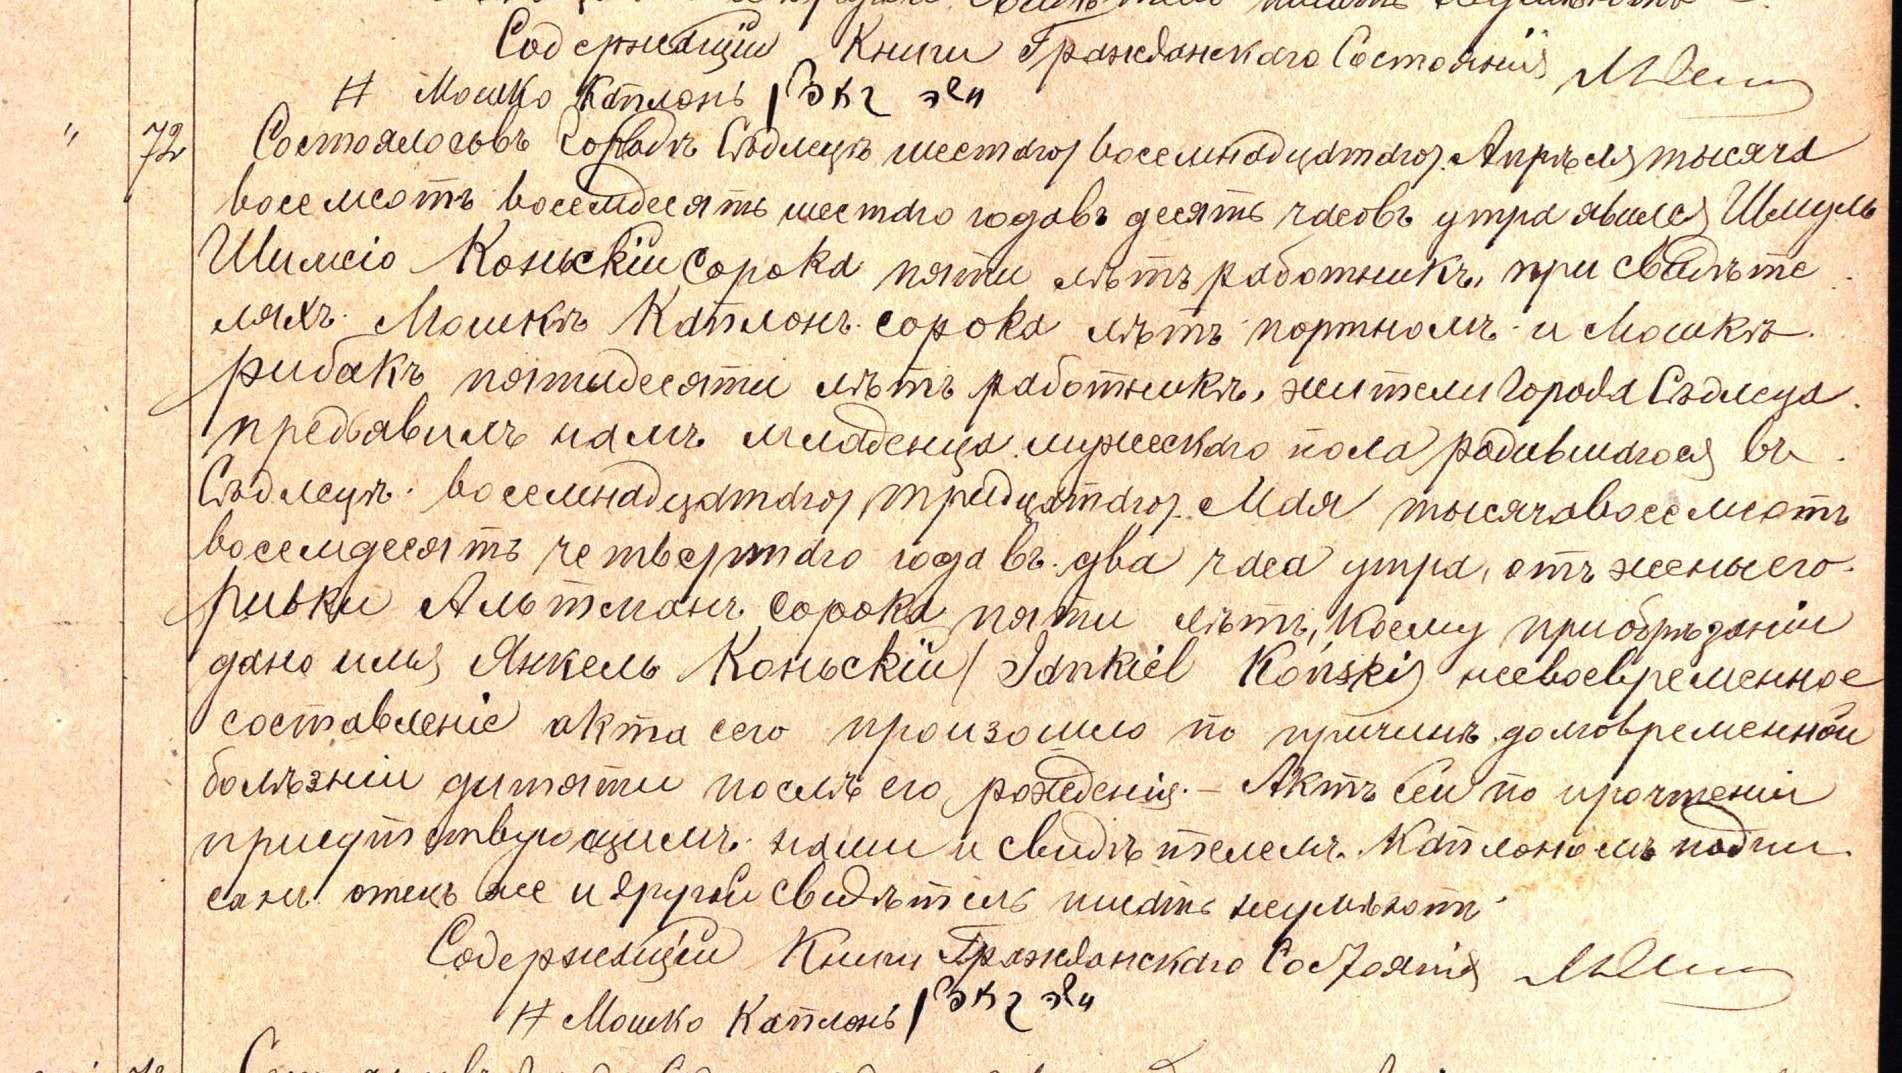 Содержащій Книги Гражданскаго Состоянія
# Мошко Каплонъ
" 72 Состоялось въ городѣ Сѣдлецѣ шестаго / восемнадцатаго / Апрѣля тысяча
восемсотъ восемдесятъ шестаго года въ десять часовъ утра явился Шмуль
Шимсіо Коньскій сорока пяти лѣтъ работникъ, при свидѣте
ляхъ Мошкѣ Каплонъ сорока лѣтъ портномъ и Мошкѣ
рибакъ пятидесяти лѣтъ работникѣ, жители города Сѣдлеца
предъявилъ намъ младенца мужескаго пола родившагося въ
Сѣдлецѣ восемнадцатаго / тридцатаго / Мая тысяча восемсотъ
восемдесятъ четвертаго года въ два часа утра, отъ жены его
Ривки Альтманъ сорока пяти лѣтъ, коему при обрѣзаніи
дано имя Янкель Коньскій / Jankiel Koński / несвоевременное
составленіе акта сего произошло по причинѣ долговременной
болѣзніи дитяти послѣ его рожденія. – Актъ сей по прочтеніи
присутствующимъ нами и свидѣтелемъ Каплономъ подпи
санъ отецъ же и другой свидѣтель писать неумѣютъ
Содержащій Книги Гражданскаго Состоянія
# Мошко Каплонъ